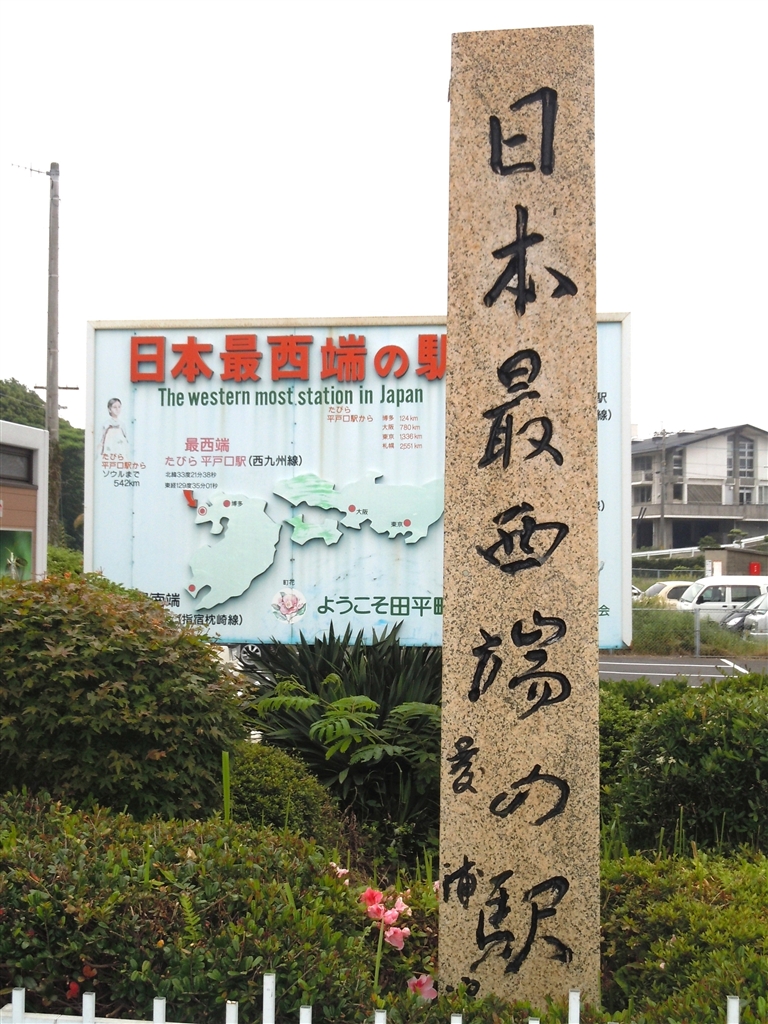 日本最西端の駅
日本最西端の駅
The western most station in Japan
たびら
平戸口駅から
博多 124km
大阪 780km
東京 1336km
札幌 2551km
たびら
平戸口駅から
ソウルまで
542km
最西端
たびら平戸口駅(西九州線)
北緯33度21分38秒
東経129度35分01秒
博多
大阪
東京
駅
線)
南端
(指宿枕崎線)
町花
ようこそ田平町
会